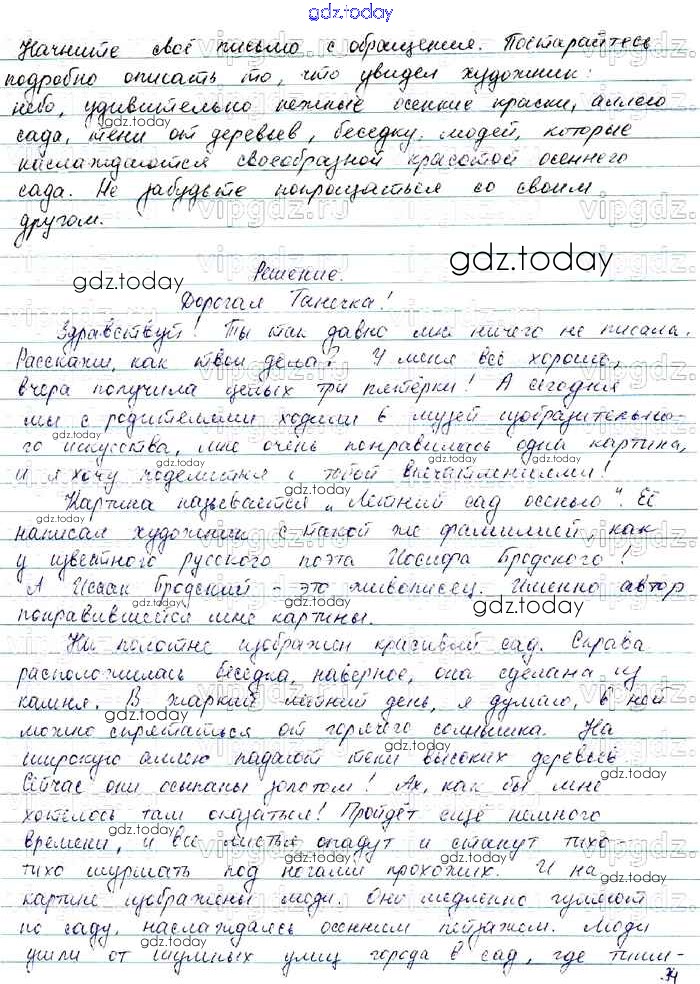 gdz.today
Начните своё письмо с обращения. Постарайтесь
подробно описать то, что увидел художник:
небо, удивительно нежные осенние краски, аллею
сада, тени от деревьев, беседку, людей, которые
наслаждаются своеобразной красотой осеннего
сада. Не забудьте попрощаться со своим
другом.
Решение.
gdz.today
gdz.today
Дорогая Танечка!
Здравствуй! Ты так давно мне ничего не писала.
Расскажи, как твои дела? У меня всё хорошо,
вчера получила целых три пятёрки! А сегодня
мы с родителями ходили в музей изобразительно-
го искусства, мне очень понравилась одна картина,
и я хочу поделиться с тобой впечатлениями!
Картина называется „Летний сад осенью“. Её
написал художник с такой же фамилией, как
у известного русского поэта Иосифа Бродского!
А Исаак Бродский - это живописец. Именно автор
понравившейся мне картины.
На полотне изображён красивый сад. Справа
расположилась беседка, наверное, она сделана из
камня. В жаркий летний день, я думаю, в ней
можно спрятаться от горячего солнышка. На
широкую аллею падают тени высоких деревьев.
Сейчас они осыпаны золотом! Ах, как бы мне
хотелось там оказаться! Пройдёт ещё немного
времени, и все листья опадут и станут тихо-
тихо шуршать под ногами прохожих. И на
картине изображены люди. Они медленно гуляют
по саду, наслаждаясь осенним пейзажем. Люди
ушли от шумных улиц города в сад, где тиши-
34